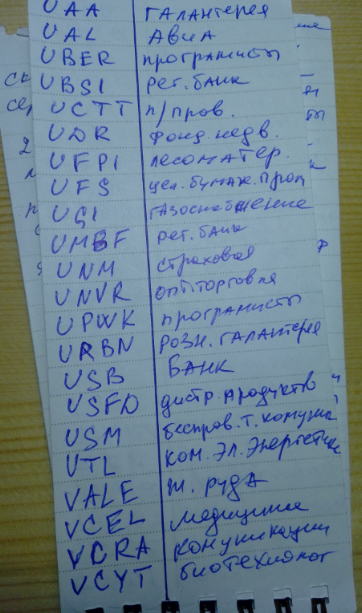 UAA галантерея
UAL Авиа
UBER програмисты
UBSI рег. банк
UCTT п/пров.
UDR Фонд недв.
UFPI лесоматер.
UFS цел. бумаж. пром
UGI газоснабжение
UMBF рег. банк
UNM страховая
UNVR опт.торговля
UPWK програмисты
URBN розн. галантерея
USB Банк
USFD дистр. продуктов
USM беспров. т. комуник
UTL ком. эл. энергетик
VALE ж. руда
VCEL медицина
VCRA комуникации
VCYT биотехнолог